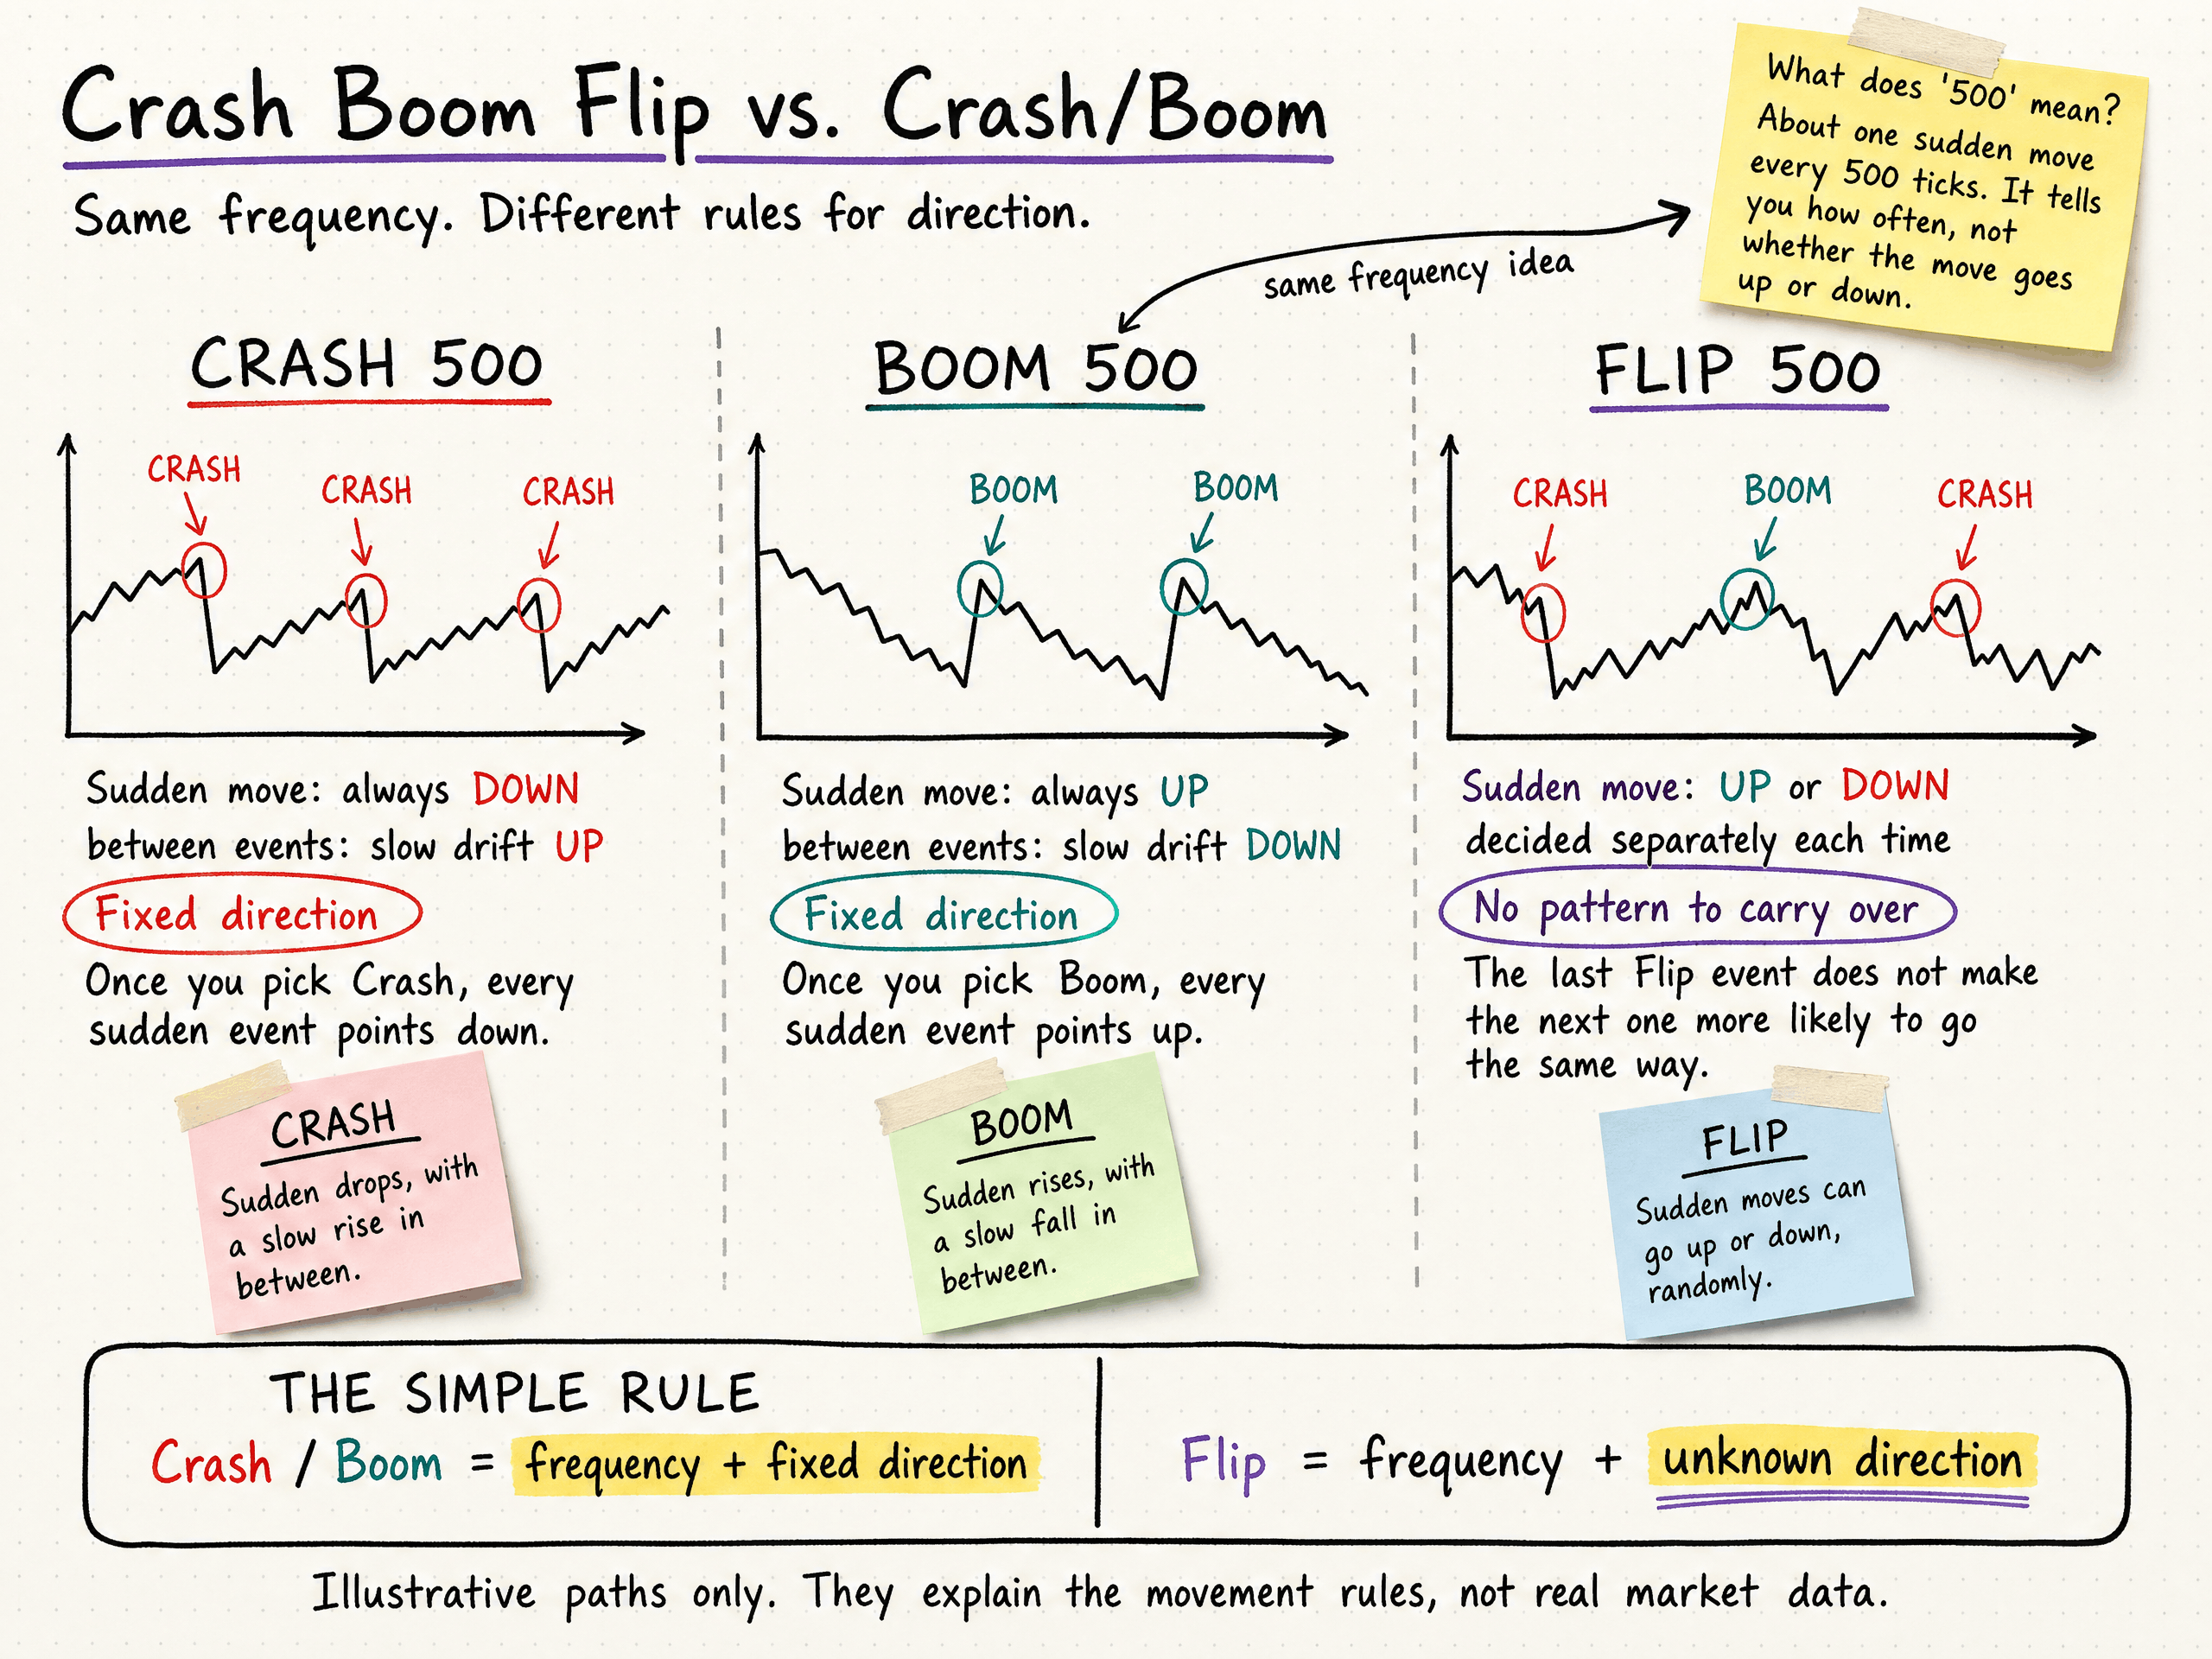 Crash Boom Flip vs. Crash/Boom
Same frequency. Different rules for direction.
What does '500' mean?
About one sudden move
every 500 ticks. It tells
you how often, not
whether the move goes
up or down.
same frequency idea
CRASH 500
CRASH
CRASH
CRASH
Sudden move: always DOWN
between events: slow drift UP
Fixed direction
Once you pick Crash, every
sudden event points down.
CRASH
Sudden drops, with
a slow rise in
between.
BOOM 500
BOOM
BOOM
Sudden move: always UP
between events: slow drift DOWN
Fixed direction
Once you pick Boom, every
sudden event points up.
BOOM
Sudden rises, with
a slow fall in
between.
FLIP 500
CRASH
BOOM
CRASH
Sudden move: UP or DOWN
decided separately each time
No pattern to carry over
The last Flip event does not make
the next one more likely to go
the same way.
FLIP
Sudden moves can
go up or down,
randomly.
THE SIMPLE RULE
Crash / Boom = frequency + fixed direction
Flip = frequency + unknown direction
Illustrative paths only. They explain the movement rules, not real market data.